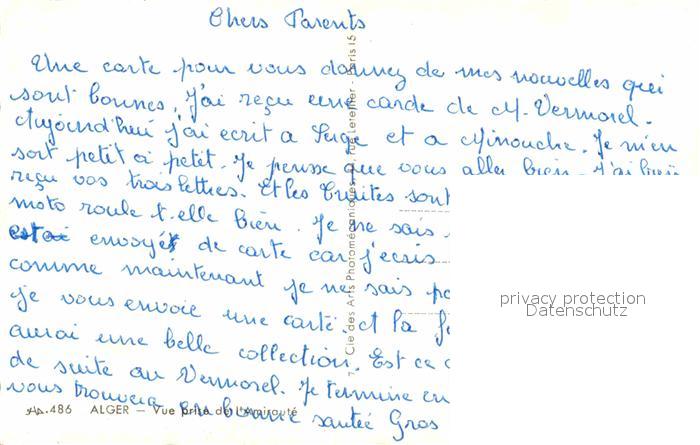 Chers Parents
Une carte pour vous donnez de mes nouvelles qui
sont bonnes. J'ai reçu une carde de M. Vermorel.
Aujourd'hui j'ai ecrit a Serge et a Minouche. Je m'en
sort petit a petit. Je pensse que vous aller bien. J'ai bien
reçu vos trois lettres. Et les Truites sont
moto roule t-elle bien. Je ne sais
envoyé de carte car j'ecris
comme maintenant je ne sais
je vous envoie une carte. et la
aurai une belle collection. Est ce
de suite au Vermorel. Je termine en
vous trouvera en bonne santée Gros
486 ALGER — Vue prise de l'Amirauté
Cie des Arts Photomécaniques
Paris 15
privacy protection
Datenschutz